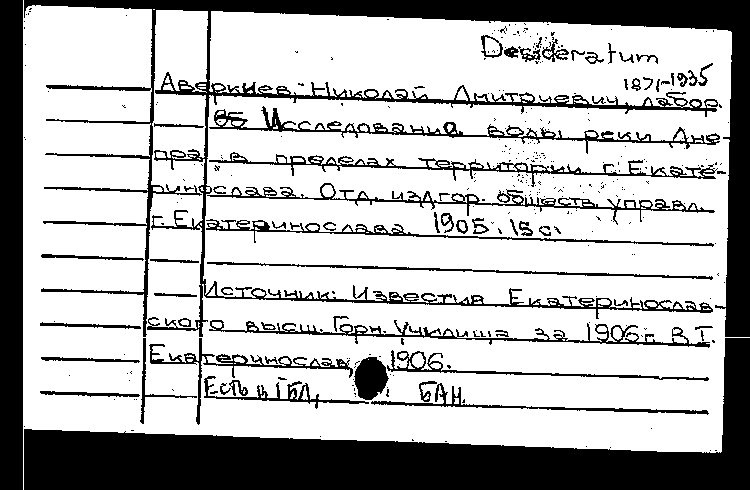 Desideratum
1871-1935
Аверкиев, Николай Дмитриевич, лабор.
Исследования воды реки Дне-
пра в пределах территории г. Екате-
ринослава. Отд. изд. гор. обществ. управл.
г. Екатеринослава. 1905. 15 с.
Источник: Известия Екатеринослав-
ского высш. Горн. училища за 1906 г. В. I.
Екатеринослав, 1906.
Есть в ГБЛ, БАН.